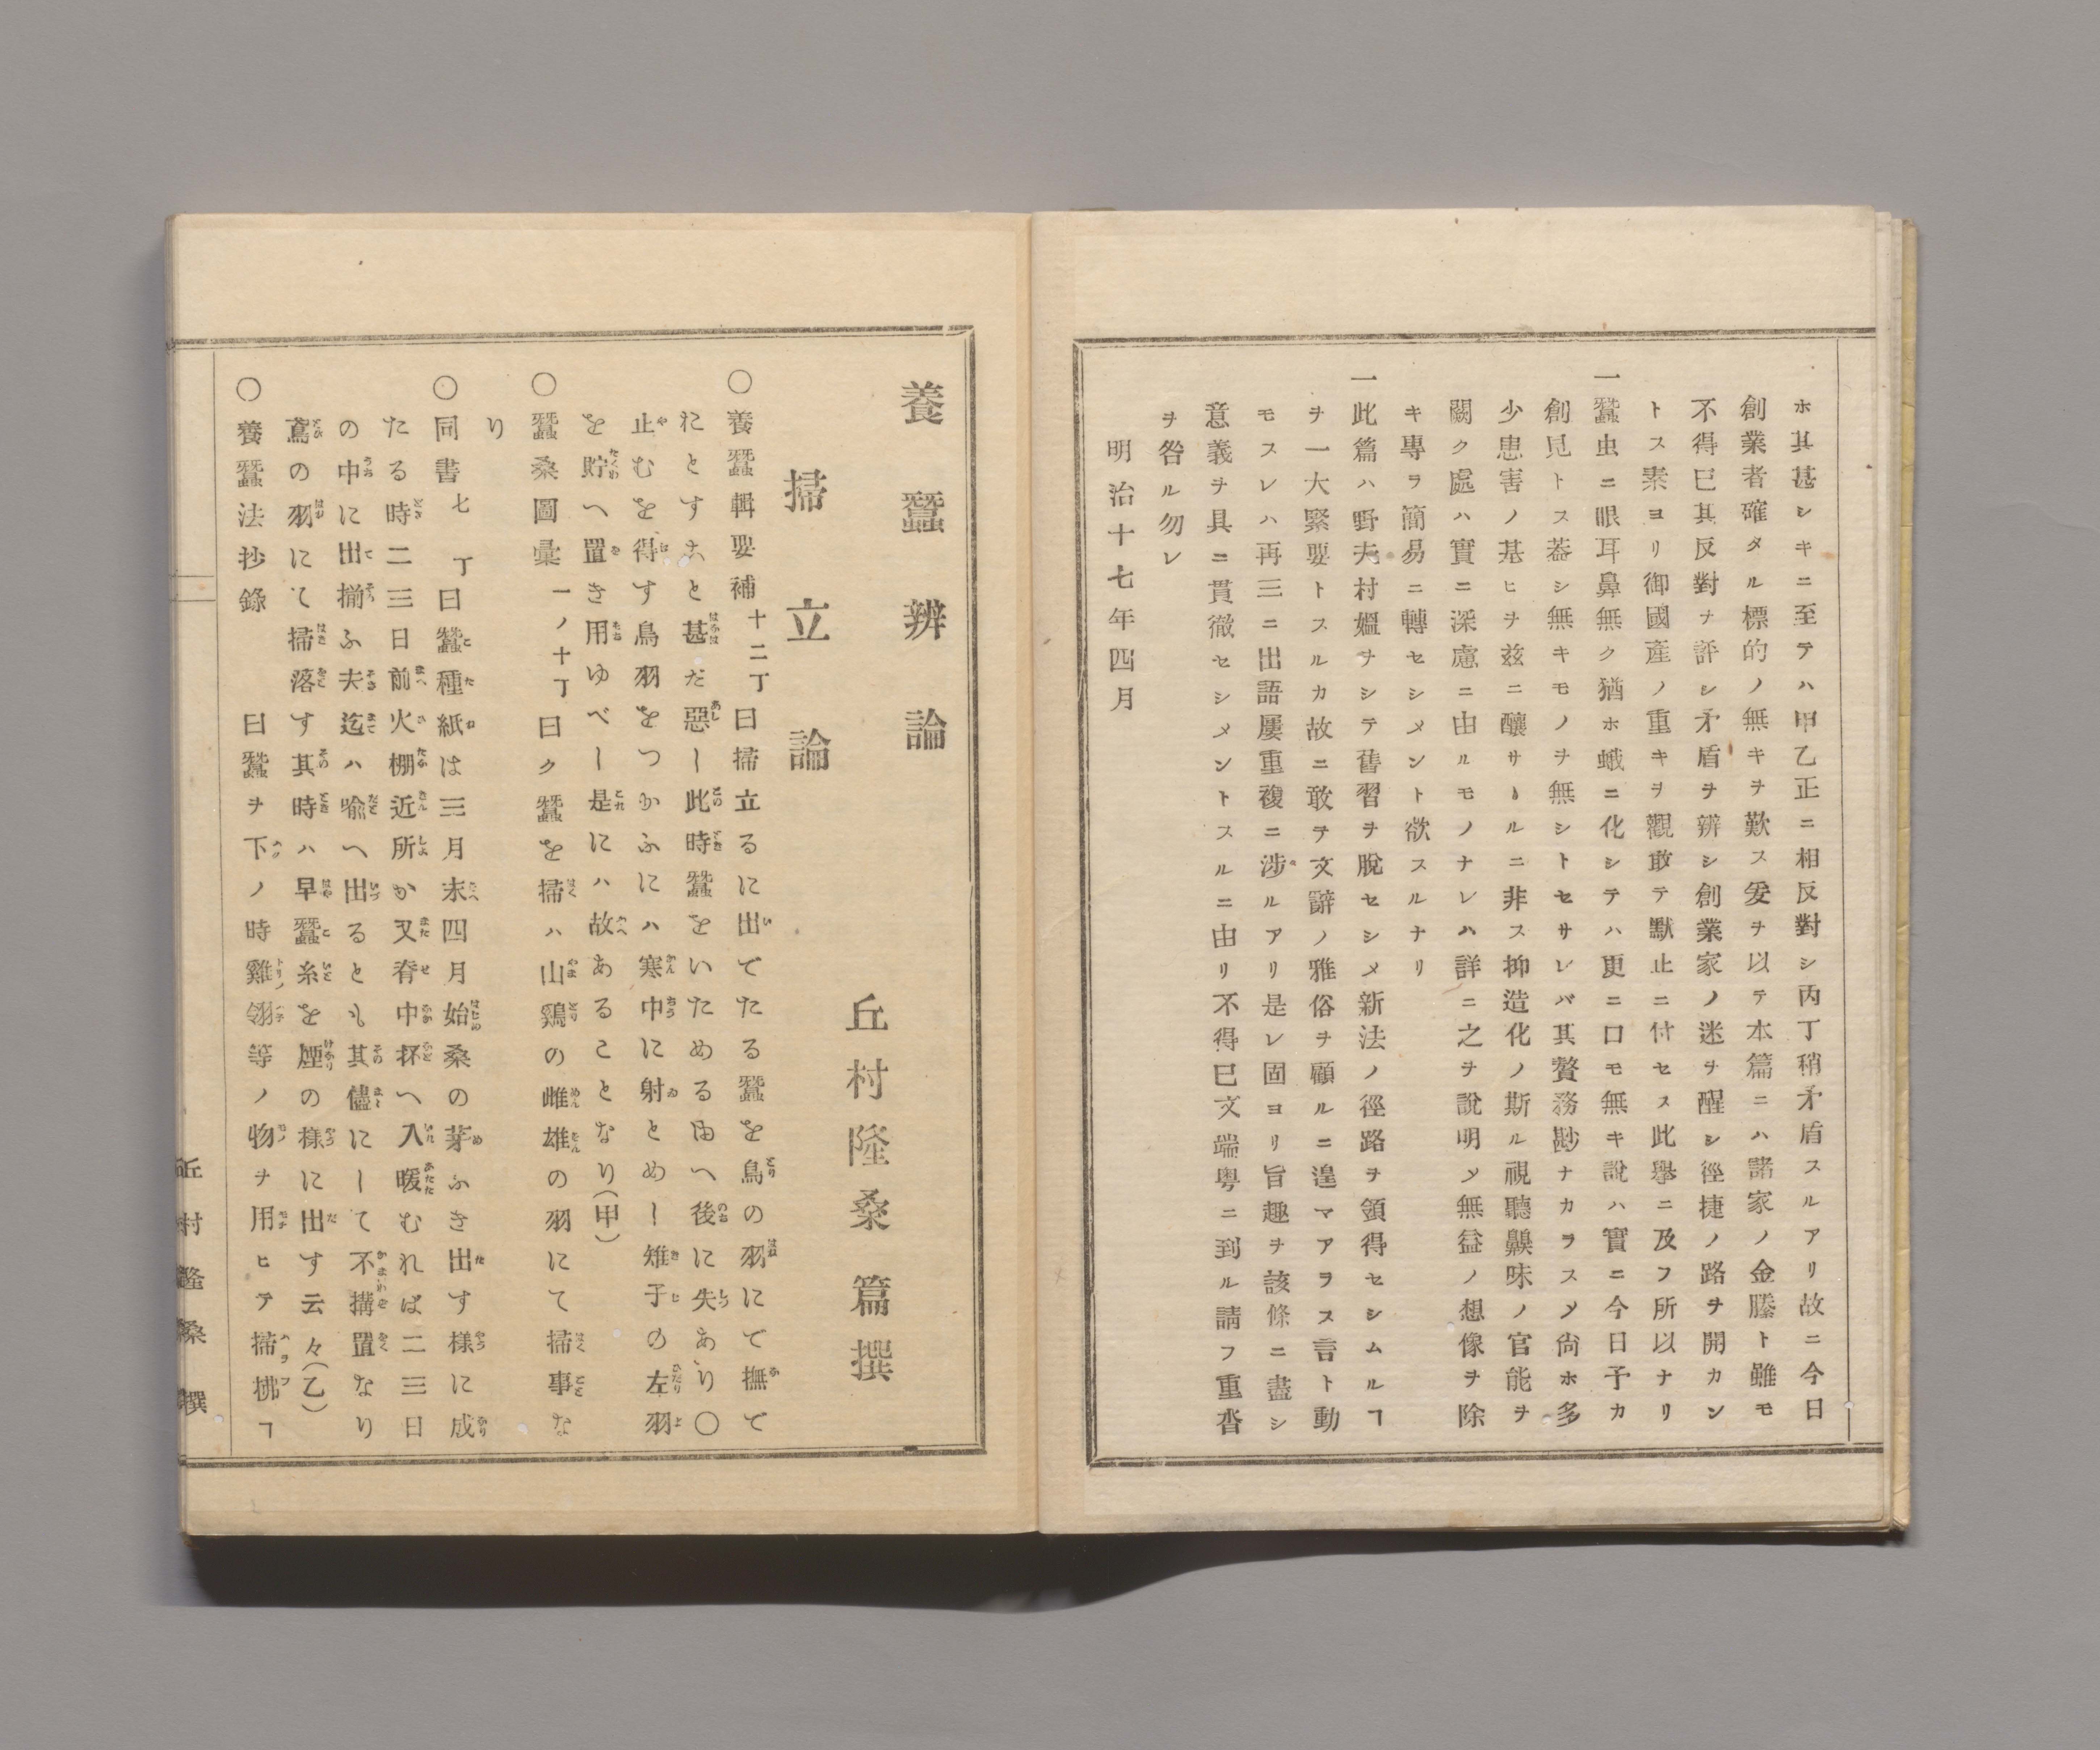 ホ其甚シキニ至テハ甲乙正ニ相反對シ丙丁稍矛盾スルアリ故ニ今日
創業者確タル標的ノ無キヲ歎ス爰ヲ以テ本篇ニハ諸家ノ金縢ト雖モ
不得已其反對ヲ評シ矛盾ヲ辨シ創業家ノ迷ヲ醒シ徑捷ノ路ヲ開カン
トス素ヨリ御國產ノ重キヲ觀敢テ默止ニ付セス此擧ニ及フ所以ナリ
一蠶虫ニ眼耳鼻無ク猶ホ蛾ニ化シテハ更ニ口モ無キ說ハ實ニ今日予カ
創見トス蓋シ無キモノヲ無シトセサレバ其贅務尠ナカラスメ尙ホ多
少患害ノ基ヒヲ茲ニ釀サヽルニ非ス抑造化ノ斯ル視聽齅味ノ官能ヲ
闕ク處ハ實ニ深慮ニ由ルモノナレハ詳ニ之ヲ說明メ無益ノ想像ヲ除
キ專ヲ簡易ニ轉セシメント欲スルナリ
一此篇ハ野夫村媼ヲシテ舊習ヲ脫セシメ新法ノ徑路ヲ領得セシムルヿ
ヲ一大緊要トスルカ故ニ敢テ文辭ノ雅俗ヲ顧ルニ遑マアラス言ト動
モスレハ再三ニ出語屢重複ニ涉ルアリ是レ固ヨリ旨趣ヲ該條ニ盡シ
意義ヲ具ニ貫徹セシメントスルニ由リ不得已文端粤ニ到ル請フ重沓
ヲ咎ル勿レ
明治十七年四月
養蠶辨論
丘村隆桑篇撰
掃立論
○養蠶輯要補十二丁曰掃立るに出てたる蠶を鳥の羽にて撫て
おとすこと甚だ惡し此時蠶をいためるゆへ後に失あり○
止むを得す鳥羽をつかふにハ寒中に射とめし雉子の左羽
を貯へ置き用ゆべし是にハ故あることなり(甲)
○蠶桑圖彙一ノ十丁曰ク蠶を掃ハ山鷄の雌雄の羽にて掃事な
り
○同書七丁曰蠶種紙は三月末四月始桑の芽ふき出す樣に成
たる時二三日前火棚近所か又脊中抔へ入暖むれば二三日
の中に出揃ふ夫迄ハ喩へ出るとも其儘にして不搆置なり
鳶の羽にて掃落す其時ハ早蠶糸を煙の樣に出す云々(乙)
○養蠶法抄錄　曰蠶ヲ下ノ時雞翎等ノ物ヲ用ヒテ掃拂ヿ
丘村隆桑撰